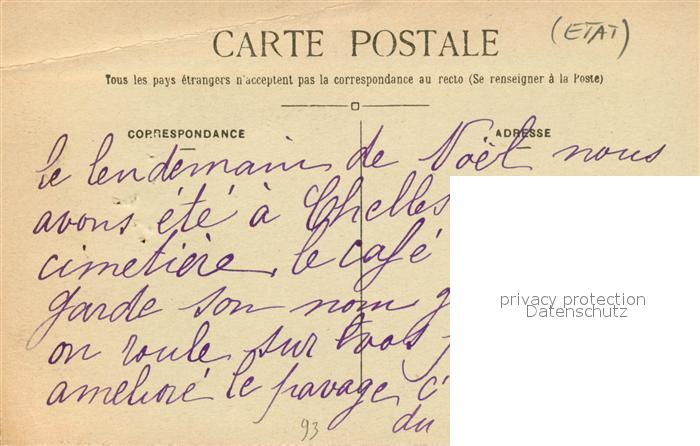 (ETAT)
CARTE POSTALE
Tous les pays étrangers n'acceptent pas la correspondance au recto (Se renseigner à la Poste)
CORRESPONDANCE
ADRESSE
Le lendemain de Noël nous
avons été à Chelles
cimetière, le café
garde son nom
on roule sur
amelioré le pavage, c'
du
93
privacy protection
Datenschutz